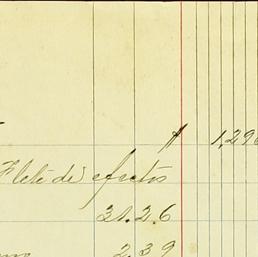 $ 1,29
Flete de efectos
31.26
2.39